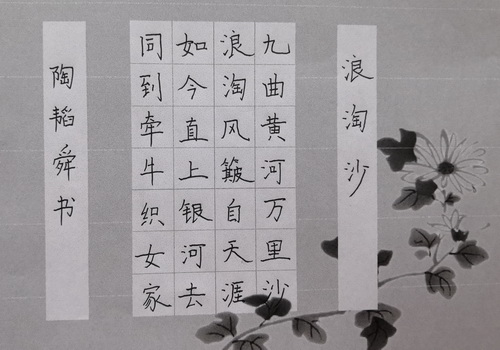 浪淘沙
九曲黄河万里沙
浪淘风簸自天涯
如今直上银河去
同到牵牛织女家
陶韬舜书